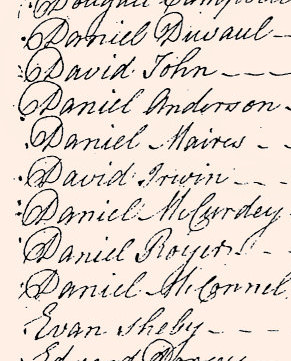 Dougall Campbell
Daniel Duvaul
David John
Daniel Anderson
Daniel Maires
David Irwin
Daniel McCurdey
Daniel Royer
Daniel McConnel
Evan Shelby
Edward